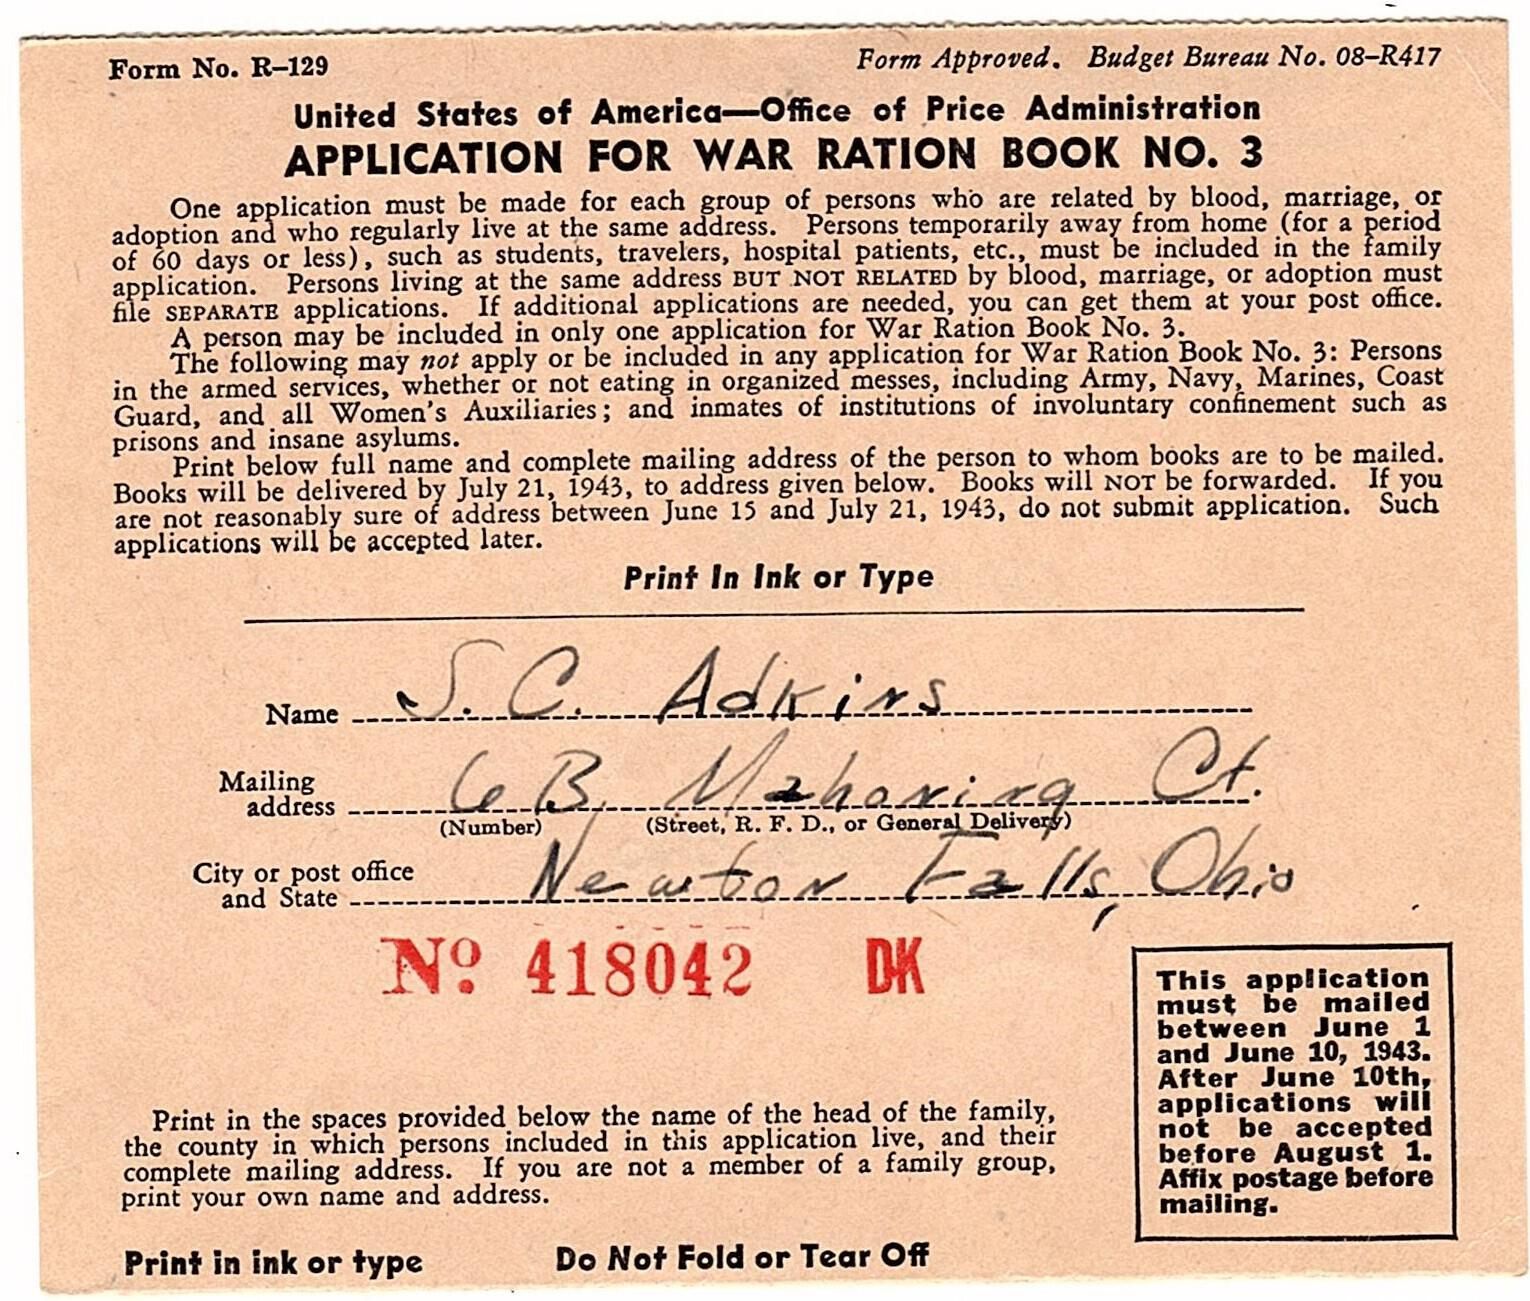 Form No. R–129
Form Approved. Budget Bureau No. 08–R417
United States of America—Office of Price Administration
APPLICATION FOR WAR RATION BOOK NO. 3
One application must be made for each group of persons who are related by blood, marriage, or
adoption and who regularly live at the same address. Persons temporarily away from home (for a period
of 60 days or less), such as students, travelers, hospital patients, etc., must be included in the family
application. Persons living at the same address BUT NOT RELATED by blood, marriage, or adoption must
file SEPARATE applications. If additional applications are needed, you can get them at your post office.
A person may be included in only one application for War Ration Book No. 3.
The following may not apply or be included in any application for War Ration Book No. 3: Persons
in the armed services, whether or not eating in organized messes, including Army, Navy, Marines, Coast
Guard, and all Women's Auxiliaries; and inmates of institutions of involuntary confinement such as
prisons and insane asylums.
Print below full name and complete mailing address of the person to whom books are to be mailed.
Books will be delivered by July 21, 1943, to address given below. Books will NOT be forwarded. If you
are not reasonably sure of address between June 15 and July 21, 1943, do not submit application. Such
applications will be accepted later.
Print In Ink or Type
Name S. C. Adkins
Mailing address 6 B. Mahoning Ct.
(Number) (Street, R. F. D., or General Delivery)
City or post office and State Newton Falls, Ohio
No. 418042 DK
This application
must be mailed
between June 1
and June 10, 1943.
After June 10th,
applications will
not be accepted
before August 1.
Affix postage before
mailing.
Print in the spaces provided below the name of the head of the family,
the county in which persons included in this application live, and their
complete mailing address. If you are not a member of a family group,
print your own name and address.
Print in ink or type Do Not Fold or Tear Off